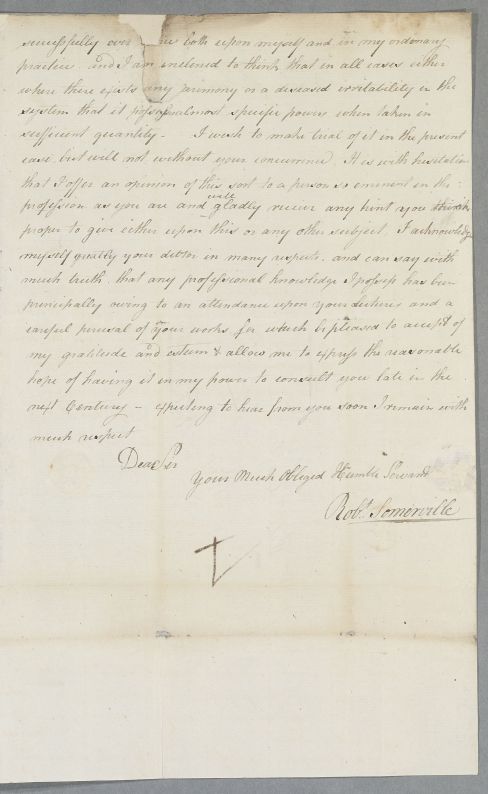 sucessfully over me both upon myself and in my ordonary
practice and I am encloned to think that in all cases either
where there exists any acrimony or a diseased irritability in the
system that it possess almost specific powers when taken in
sufficient quantity - I wish to make trial of it in the present
case but will not without your concurrence. It is with hesitation
that I offer an opinion of this sort to a person so eminent in the
profession as you are and will gladly receive any hint you think
proper to give either upon this or any other subject. I acknowledge
myself greatly your debtor in many respects. and can say with
much truth that any professional knowledge I possess has been
principally owing to an attendance upon your lectures and a
careful perusal of your works for which be pleased to accept of
my gratitude and esteem & allow me to express the reasonable
hope of having it in my power to consult you late in the
next Century - expecting to hear from you soon I remain with
much respect
Dear Sir
Your Much Obliged Humble Servant
Robt. Somerville